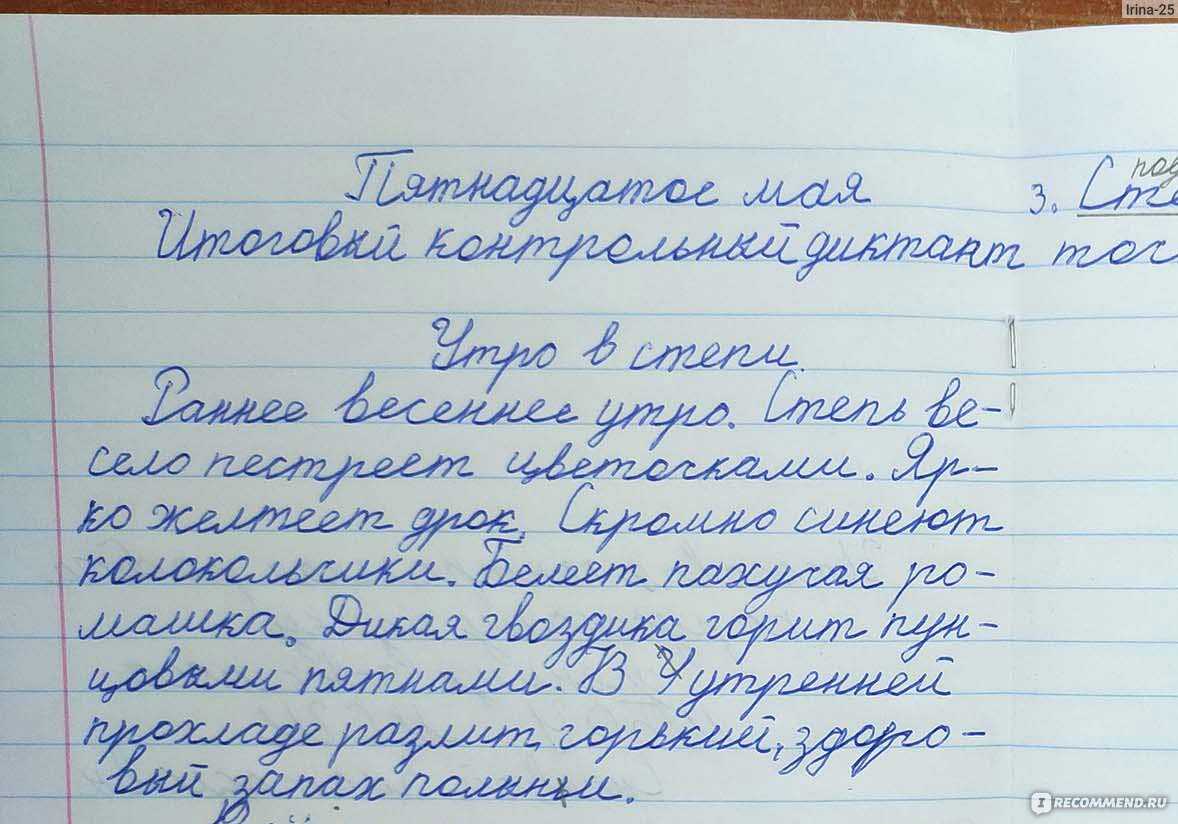 Irina-25
Пятнадцатое мая
Итоговый контрольный диктант
Утро в степи.
Раннее весеннее утро. Степь ве-
село пестреет цветочками. Яр-
ко желтеет дрок. Скромно синеют
колокольчики. Белеет пахучая ро-
машка. Дикая гвоздика горит пун-
цовыми пятнами. В утренней
прохладе разлит горький, здоро-
вый запах полыни.
под
3. Сте
точ
IRECOMMEND.RU